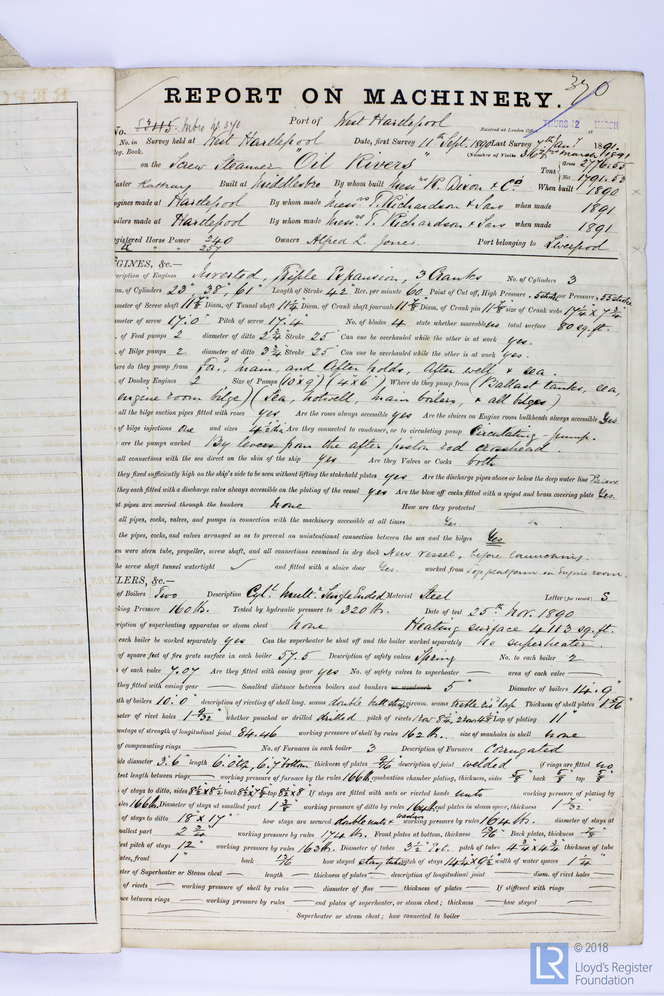 370
REPORT ON MACHINERY.
No. Port of West Hartlepool
Received at London Office THURS 12 MARCH
No. in Survey held at West Hartlepool Date, first Survey 11th Sept. 1890 Last Survey 7th 1891
Reg. Book. (Number of Visits
on the Screw Steamer "Oil Rivers" Tons Gross 2776.55
Net 1791.53
Master Built at Middlesbro By whom built Messrs R. Dixon & Co When built 1890
Engines made at Hartlepool By whom made Messrs T. Richardson & Sons when made 1891
Boilers made at Hartlepool By whom made Messrs T. Richardson & Sons when made 1891
Registered Horse Power 240 Owners Alfred L. Jones Port belonging to Liverpool
ENGINES, &c.—
Description of Engines Inverted, Triple Expansion, 3 Cranks No. of Cylinders 3
Diam. of Cylinders 23" 38" 61" Length of Stroke 42 Rev. per minute 60 Point of Cut off, High Pressure Low Pressure
Diameter of Screw shaft 11 Diam. of Tunnel shaft 11 Diam. of Crank shaft journals 11 Diam. of Crank pin 11 size of Crank webs
Diameter of screw 17.0 Pitch of screw 17.4 No. of blades 4 state whether moveable yes total surface 80 sq. ft.
No. of Feed pumps 2 diameter of ditto 2 3/4 Stroke 25 Can one be overhauled while the other is at work yes.
No. of Bilge pumps 2 diameter of ditto 3 3/4 Stroke 25 Can one be overhauled while the other is at work yes.
Where do they pump from For, main, and After holds, After well, & sea.
No. of Donkey Engines 2 Size of Pumps (10"x9") (4"x6") Where do they pump from (Ballast tanks, sea,
engine room bilge) (Sea, hotwell, main boilers, & all bilges)
Are all the bilge suction pipes fitted with roses yes Are the roses always accessible yes Are the sluices on Engine room bulkheads always accessible Yes
No. of bilge injections one and sizes Are they connected to condenser, or to circulating pump Circulating pump.
How are the pumps worked By levers from the after piston rod crosshead.
Are all connections with the sea direct on the skin of the ship yes Are they Valves or Cocks both
Are they fixed sufficiently high on the ship's side to be seen without lifting the stokehold plates yes Are the discharge pipes above or below the deep water line
Are they each fitted with a discharge valve always accessible on the plating of the vessel yes Are the blow off cocks fitted with a spigot and brass covering plate Yes.
What pipes are carried through the bunkers none How are they protected
Are all pipes, cocks, valves, and pumps in connection with the machinery accessible at all times Yes.
Are the pipes, cocks, and valves arranged so as to prevent an unintentional connection between the sea and the bilges Yes
When were stern tube, propeller, screw shaft, and all connections examined in dry dock New vessel, before launching.
Is the screw shaft tunnel watertight and fitted with a sluice door Yes. worked from top platform in Engine room.
BOILERS, &c.—
No. of Boilers Two Description Cyl. Mult. Single Ended Material Steel Letter (for record) S
Working Pressure 160 lb. Tested by hydraulic pressure to 320 lb. Date of test 25th Nov. 1890
Description of superheating apparatus or steam chest none Heating surface 4113 sq. ft.
Can each boiler be worked separately yes Can the superheater be shut off and the boiler worked separately No superheater.
No. of square feet of fire grate surface in each boiler 57.5 Description of safety valves Spring No. to each boiler 2
Area of each valve 7.07 Are they fitted with easing gear yes No. of safety valves to superheater — area of each valve —
Are they fitted with easing gear — Smallest distance between boilers and bunkers 5" Diameter of boilers 14.9
Length of boilers 10.0 description of riveting of shell long. seams double butt strap circum. seams lap Thickness of shell plates
Diameter of rivet holes whether punched or drilled drilled pitch of rivets Lap of plating 11"
Percentage of strength of longitudinal joint 84.46 working pressure of shell by rules 162 lb. size of manholes in shell none
Size of compensating rings — No. of Furnaces in each boiler 3 Description of Furnaces Corrugated
Outside diameter 3.6 length 6.0 top, 6.7 bottom thickness of plates description of joint welded if rings are fitted no
Greatest length between rings — working pressure of furnace by the rules 166 lb combustion chamber plating, thickness, sides back top
Pitch of stays to ditto, sides back top If stays are fitted with nuts or riveted heads nuts working pressure of plating by
rules 166 lb. Diameter of stays at smallest part working pressure of ditto by rules end plates in steam space, thickness
Pitch of stays to ditto 18" x 17" how stays are secured double nuts & working pressure by rules 164 lb. diameter of stays at
smallest part 2 3/4 working pressure by rules 174 lb. Front plates at bottom, thickness Back plates, thickness
Greatest pitch of stays 12" working pressure by rules 163 lb. Diameter of tubes 3 1/2 pitch of tubes 4 3/4 x 4 3/4 thickness of tube
plates, front 1" back how stayed stay tubes pitch of stays width of water spaces
Diameter of Superheater or Steam chest — length — thickness of plates — description of longitudinal joint — diam. of rivet holes —
Pitch of rivets — working pressure of shell by rules — diameter of flue — thickness of plates — If stiffened with rings
Distance between rings — working pressure by rules — end plates of superheater, or steam chest; thickness — how stayed —
Superheater or steam chest; how connected to boiler
LR
© 2018
Lloyd's Register
Foundation